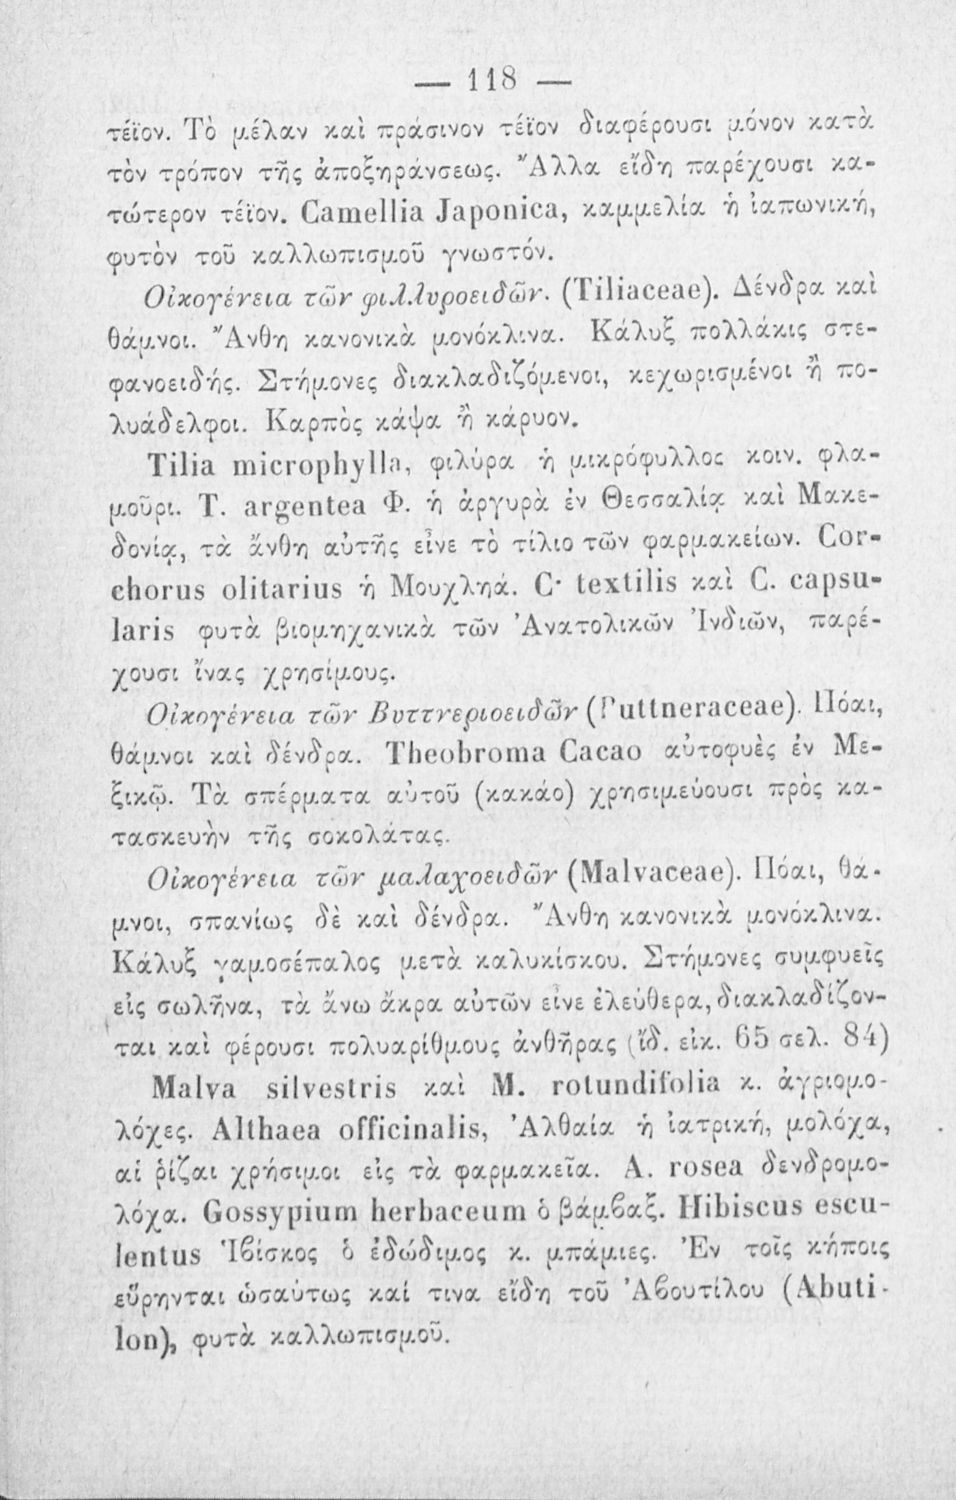 — 118 —
τέϊον. Τὸ μέλαν καὶ πράσινον τέϊον διαφέρουσι μόνον κατὰ
τὸν τρόπον τῆς ἀποξηράνσεως. Ἄλλα εἴδη παρέχουσι κα-
τώτερον τέϊον. Camellia Japonica, καμμελία ἡ ἰαπωνική,
φυτὸν τοῦ καλλωπισμοῦ γνωστόν.
Οἰκογένεια τῶν φιλλυροειδῶν. (Tiliaceae). Δένδρα καὶ
θάμνοι. Ἄνθη κανονικὰ μονόκλινα. Κάλυξ πολλάκις στε-
φανοειδής. Στήμονες διακλαδιζόμενοι, κεχωρισμένοι ἢ πο-
λυάδελφοι. Καρπὸς κάψα ἢ κάρυον.
Tilia microphylla, φιλύρα ἡ μικρόφυλλος κοιν. φλα-
μοῦρι. T. argentea Φ. ἡ ἀργυρὰ ἐν Θεσσαλίᾳ καὶ Μακε-
δονίᾳ, τὰ ἄνθη αὐτῆς εἶνε τὸ τίλιο τῶν φαρμακείων. Cor-
chorus olitarius ἡ Μουχληά. C· textilis καὶ C. capsu-
laris φυτὰ βιομηχανικὰ τῶν Ἀνατολικῶν Ἰνδιῶν, παρέ-
χουσι ἶνας χρησίμους.
Οἰκογένεια τῶν Βυττνεριοειδῶν (Puttneraceae). Πόαι,
θάμνοι καὶ δένδρα. Theobroma Cacao αὐτοφυὲς ἐν Με-
ξικῷ. Τὰ σπέρματα αὐτοῦ (κακάο) χρησιμεύουσι πρὸς κα-
τασκευὴν τῆς σοκολάτας.
Οἰκογένεια τῶν μαλαχοειδῶν (Malvaceae). Πόαι, θά-
μνοι, σπανίως δὲ καὶ δένδρα. Ἄνθη κανονικὰ μονόκλινα.
Κάλυξ γαμοσέπαλος μετὰ καλυκίσκου. Στήμονες συμφυεῖς
εἰς σωλῆνα, τὰ ἄνω ἄκρα αὐτῶν εἶνε ἐλεύθερα, διακλαδίζον-
ται καὶ φέρουσι πολυαρίθμους ἀνθῆρας (ἴδ. εἰκ. 65 σελ. 84)
Malva silvestris καὶ M. rotundifolia κ. ἀγριομο-
λόχες. Althaea officinalis, Ἀλθαία ἡ ἰατρική, μολόχα,
αἱ ῥίζαι χρήσιμοι εἰς τὰ φαρμακεῖα. A. rosea δενδρομο-
λόχα. Gossypium herbaceum ὁ βάμβαξ. Hibiscus escu-
lentus Ἱβίσκος ὁ ἐδώδιμος κ. μπάμιες. Ἐν τοῖς κήποις
εὕρηνται ὡσαύτως καί τινα εἴδη τοῦ Ἀβουτίλου (Abuti-
lon), φυτὰ καλλωπισμοῦ.